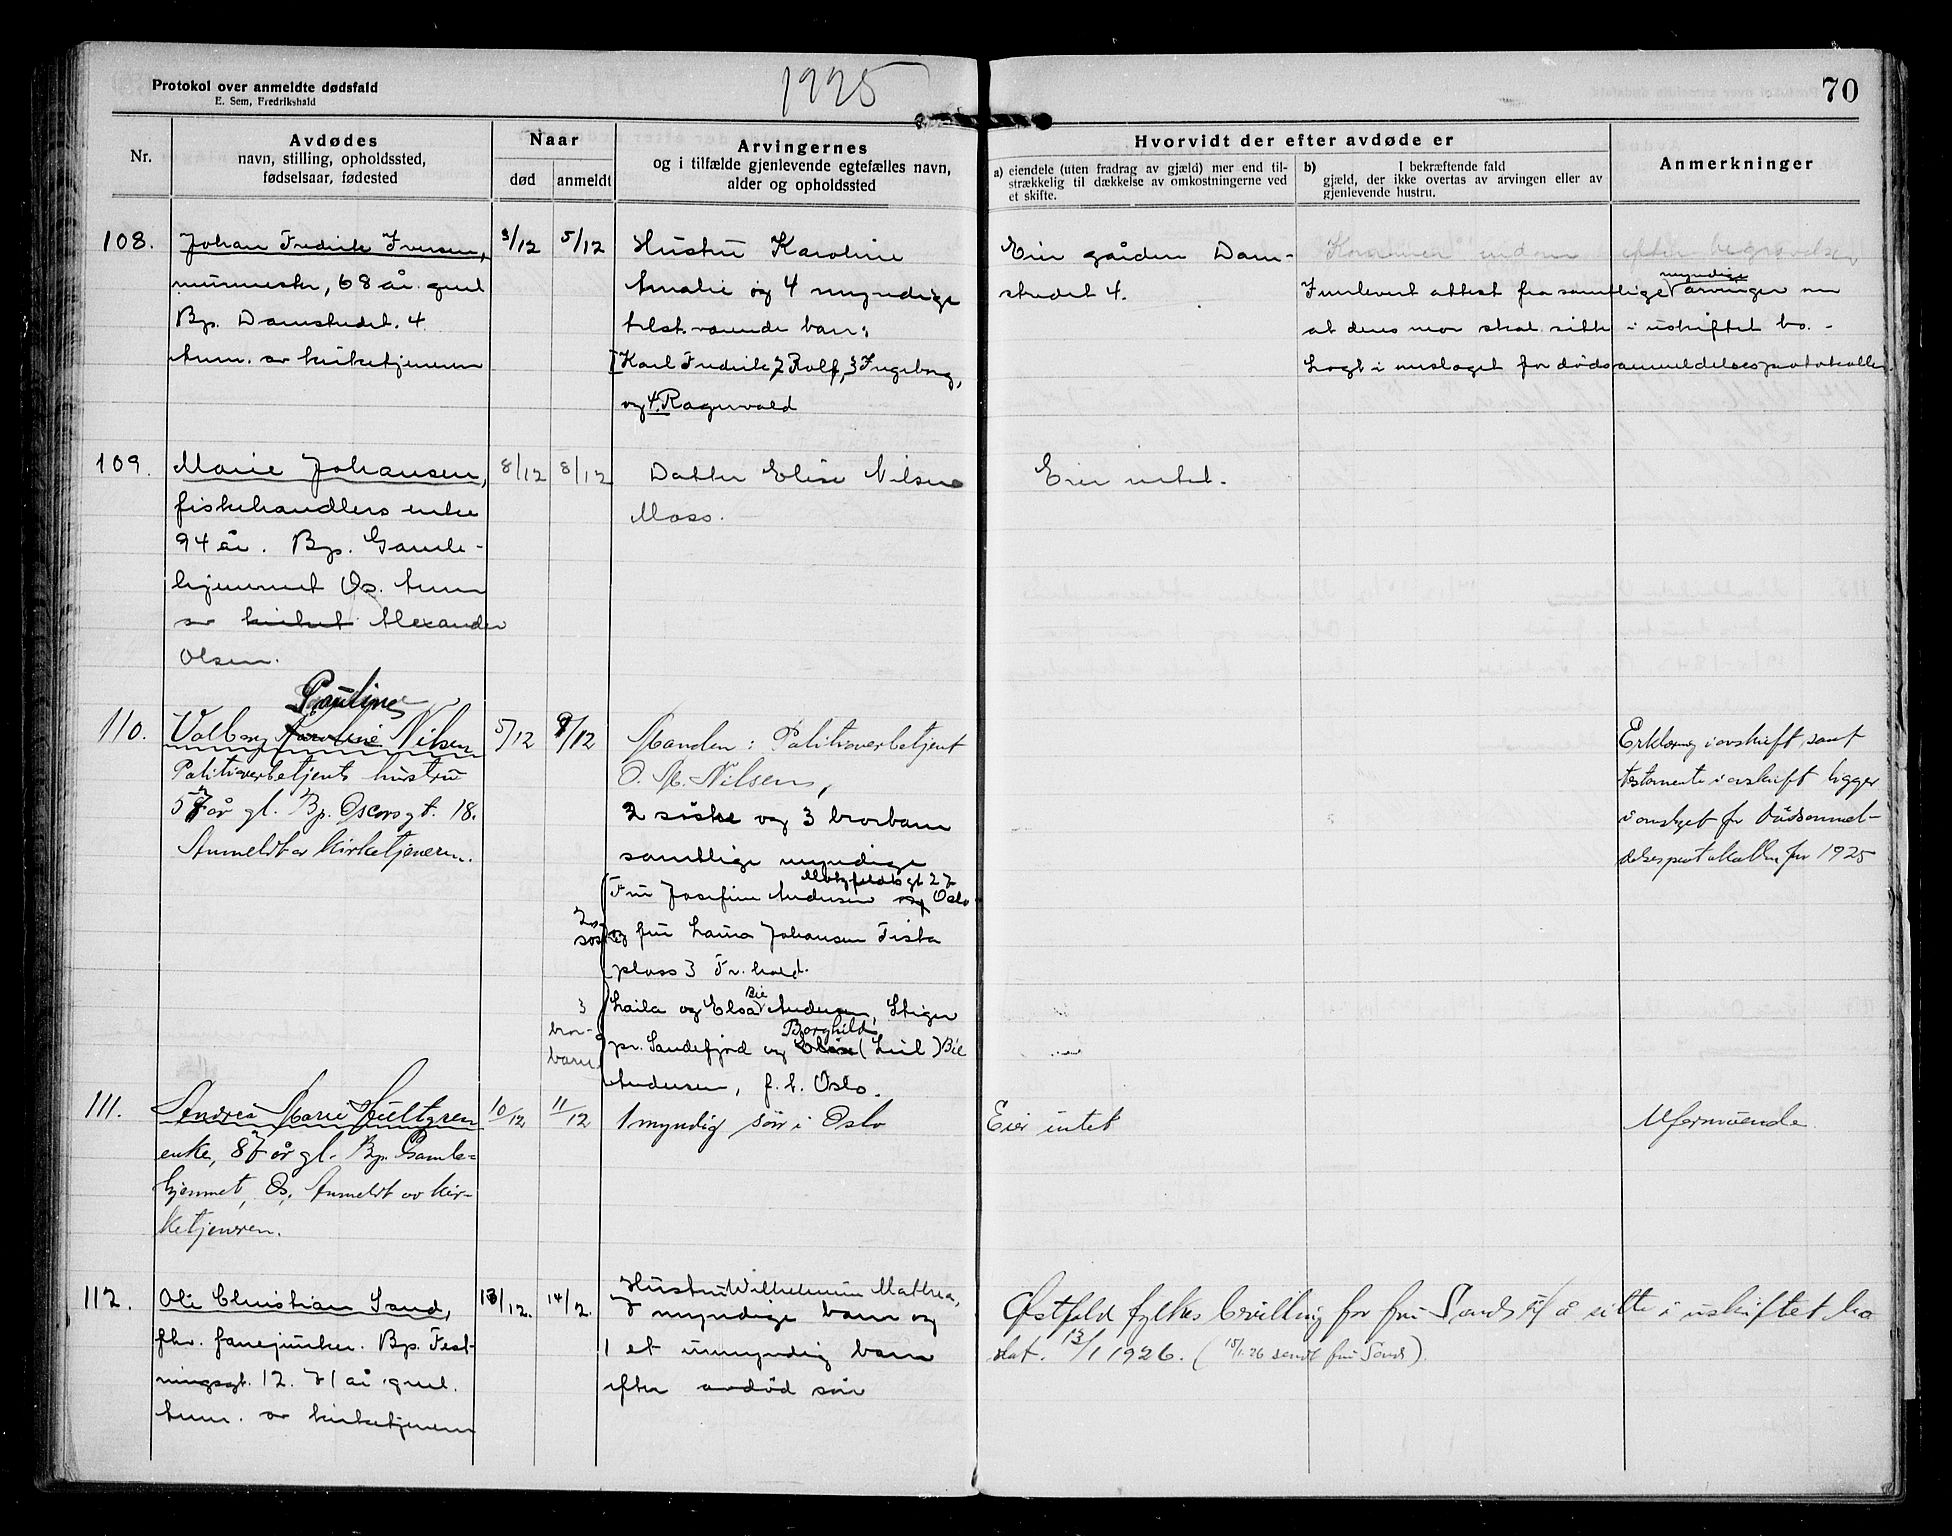 Protokol over anmeldte dødsfald
E. Sem, Fredrikshald
1925
70
Nr.
Avdødes
navn, stilling, opholdssted,
fødselsaar, fødested
Naar
død
anmeldt
Arvingernes
og i tilfælde gjenlevende egtefælles navn,
alder og opholdssted
Hvorvidt der efter avdøde er
a) eiendele (uten fradrag av gjæld) mer end til-
strækkelig til dækkelse av omkostningerne ved
et skifte.
b) I bekræftende fald
gjæld, der ikke overtas av arvingen eller av
gjenlevende hustru.
Anmerkninger
108.
Johan Fredrik Iversen,
murmester, 68 år gml
Bp. Damstredet. 4
Anm. av kirketjeneren
3/12
5/12
Hustru Karoline
Amalie og 4 myndige
tilstværende barn:
1 Karl Fredrik, 2 Rolf, 3 Ingeborg,
og 4. Ragnvald
Eier gården Dam-
stredet 4.
Kommer indom efter begravelsen
myndige
Innlevert attest fra samtlige arvinger om
at deres mor skal sitte i uskiftet bo. -
Lagt i omslaget for dødsanmeldelsesprotokollen.
109.
Marie Johansen,
fiskehandlers enke
94 år. Bp. Gamle-
hjemmet Os. Anm
av kirket Alexander
Olsen.
8/12
8/12
Datter Elise Nilsen
Moss.
Eier intet.
110.
Pauline
Valborg Karoline Nilsen
Politioverbetjents hustru
57 år gl. Bp. Oscarsgt. 18.
Anmeldt av Kirketjeneren.
5/12
9/12
Manden: Politioverbetjent
O. M. Nilsen,
2 søstre og 3 brorbarn
samtlige myndige
gt 27
Fru Josefine Andersen og Oslo
2 søstre
og fru Laura Johansen Tista
plass 3 Fr.hald.
3 bror-
barn
Bie
Laila og Elsa Andersen, Stigen
Borghild
pr. Sandefjord og Elise (Lill) Bie
Andersen, f. t. Oslo.
Erklæring i avskrift, samt
testamente i avskrift ligger
i omslaget for Dødsanmel-
delsesprotokollen for 1925
111.
Andrea Marie Hultgren
enke, 87 år gl. Bp. Gamle-
hjemmet, Os, Anmeldt av Kir-
ketjeneren.
10/12
11/12
1 myndig søn i Oslo
Eier intet
Uformuende
112.
Ole Christian Sand,
fhv. fanejunker. Bp. Fest-
ningsgt. 12. 71 år gml.
Anm. av kirketjeneren
13/12.
14/12.
Hustru Wilhelmine Mathea,
7 myndige barn og
1 et umyndig barn
efter avdød søn
Østfold fylkes bevilling for fru Sand til å sitte i uskiftet bo
dat. 13/1 1926. (15/1.26 sendt fru Sand).